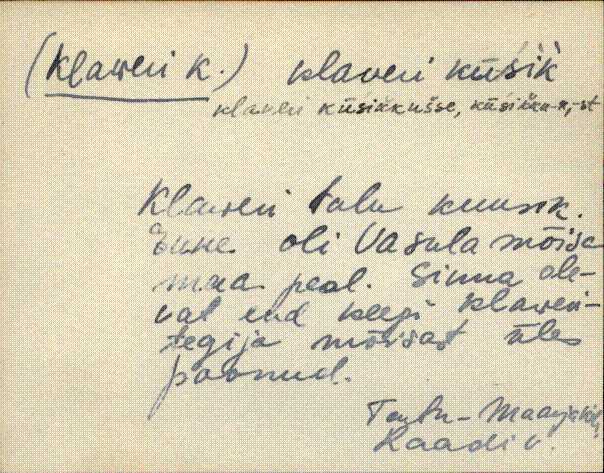 (Klaveri k.) klaveri küśik̀
klaveri küśikkušse, küśikku-n, -st
Klaveri talu kuusik.
Enne oli Vasula mõisa
maa peal. Sinna ole-
vat end keegi klaveri-
tegija mõisast üles
poonud.
Tartu-Maarja khk,
Raadi v.